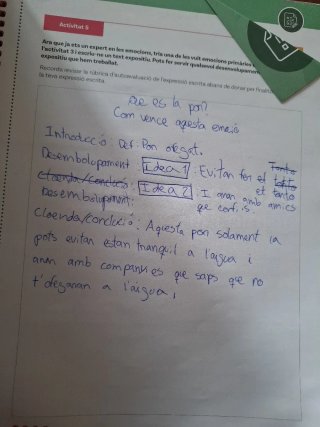 Activitat 5
Ara que ja ets un expert en les emocions, tria una de les vuit emocions primàries
l'activitat 3 i escriu-ne un text expositiu. Pots fer servir qualsevol desenvolupament
expositiu que hem treballat.
Recorda revisar la rúbrica d'autoavaluació de l'expressió escrita abans de donar per finalit
la teva expressió escrita.
Que es la por?
Com vence aquesta emoció
Introducció: Def. Por ofegat.
Desembolupament: Idea 1: Evitan fen el tonto
Claenda/Conclució: Idea 2: I anan amb amics
et tanto
Desembolupment: que confis.
Claenda/conclució: Aquesta por solament la
pots evitan estan tranquil a l'aigua i
anan amb companyies que saps que no
t'ofeganan a l'aigua.